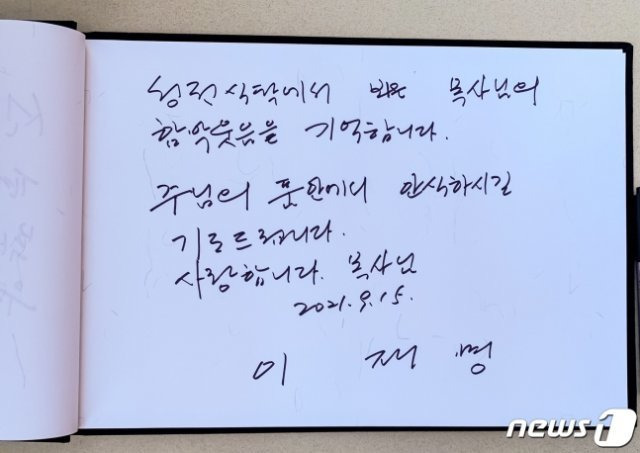 성전식탁에서 목사님의
함박웃음을 기억합니다.
주님의 품안에서 안식하시길
기도드립니다.
사랑합니다. 목사님
2021. 9. 15.
이 재 명
news1